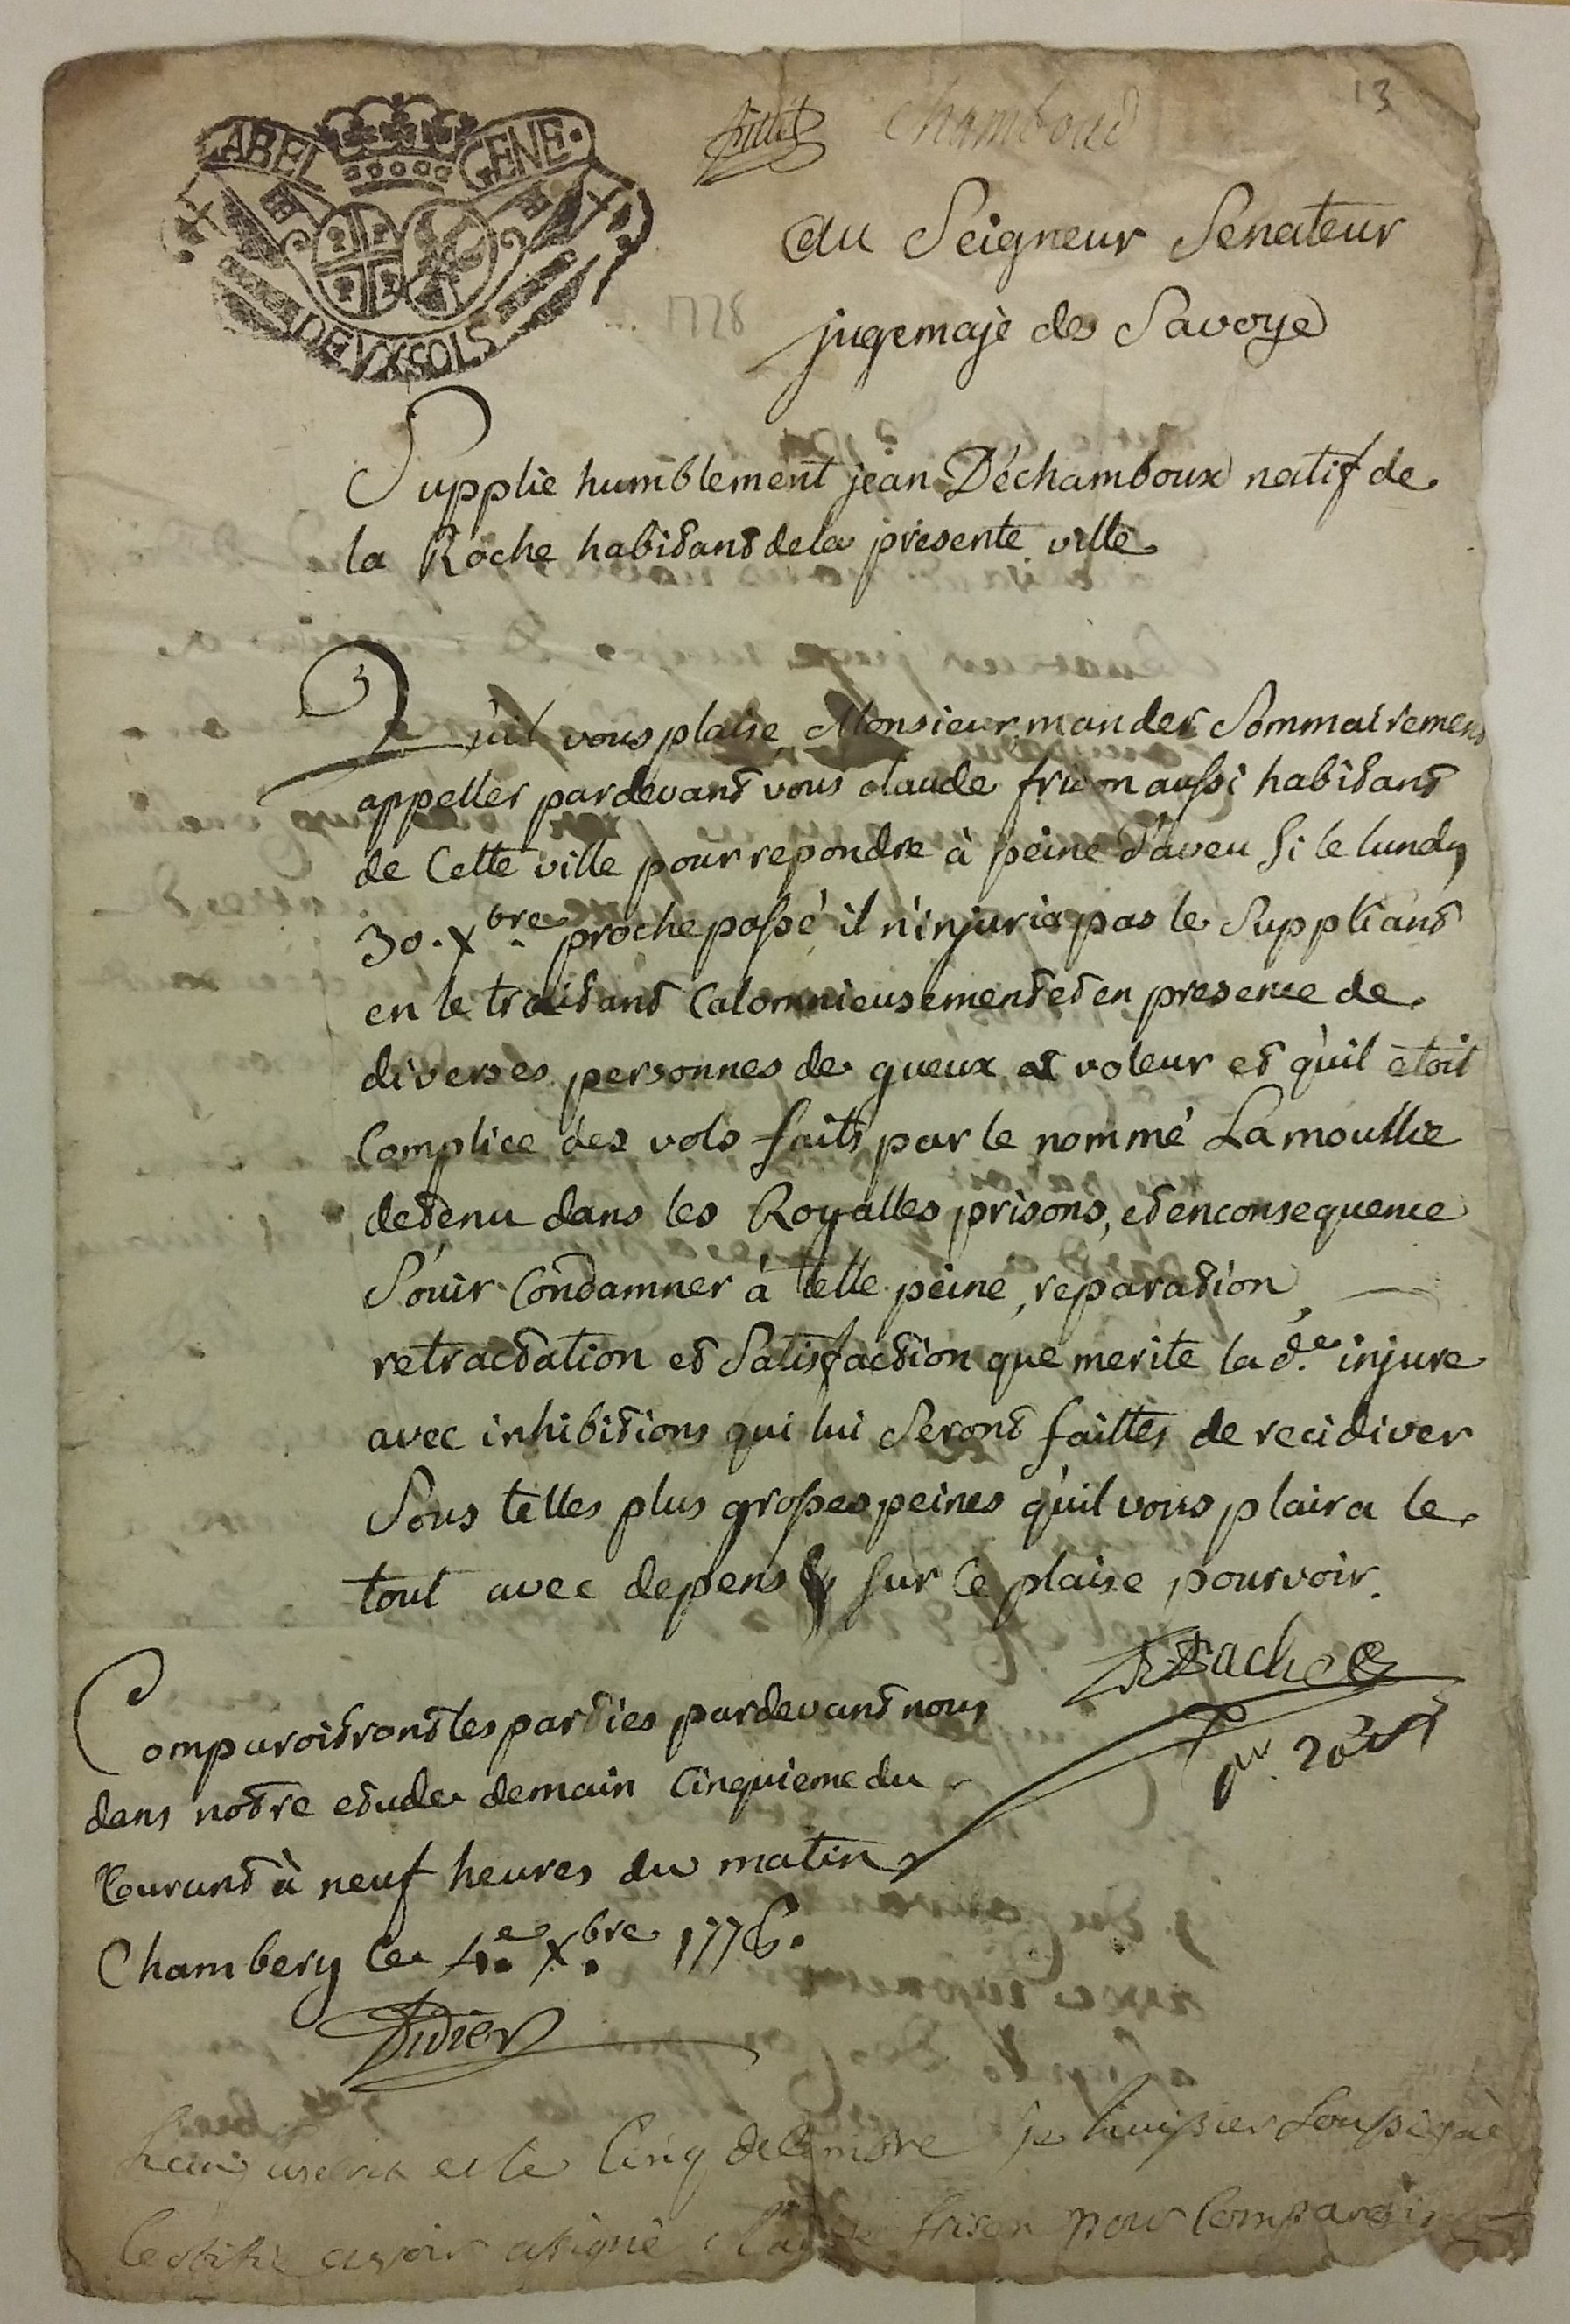 13
Chamboud
GABEL GENE.
DEVX SOLS
1778
Au Seigneur Senateur
jugemaje de Savoye
Supplie humblement jean Déchamboux natif de
la Roche habitant de la presente ville
Qu'il vous plaise Monsieur mander Sommairement
appeller pardevant vous claude frison aussi habitant
de Cette ville pour repondre à peine d'aveu Si le lundy
30. Xbre proche passé il n'injuria pas le Suppliant
en le traitant Calomnieusement et en presence de
diverses personnes de gueux et voleur et qu'il etoit
Complice des vols faits par le nommé Lamoullie
detenu dans les Royalles prisons, et enconsequence
S'ouir Condamner à telle peine, reparation,
retractation et Satisfaction que merite la de. injure
avec inhibitions qui lui Seront faittes de recidiver
Sous telles plus grosses peines qu'il vous plaira le
tout avec depens & sur ce plaise pourvoir.
Comparoitront les parties pardevant nous
dans notre etude demain Cinquieme du
Courant à neuf heures du matin
Chambery ce 4.e Xbre 1778.
Didier
et le Cinq decembre je huissier Soussigné
Certifie avoir assigné Claude frison pour Comparoir